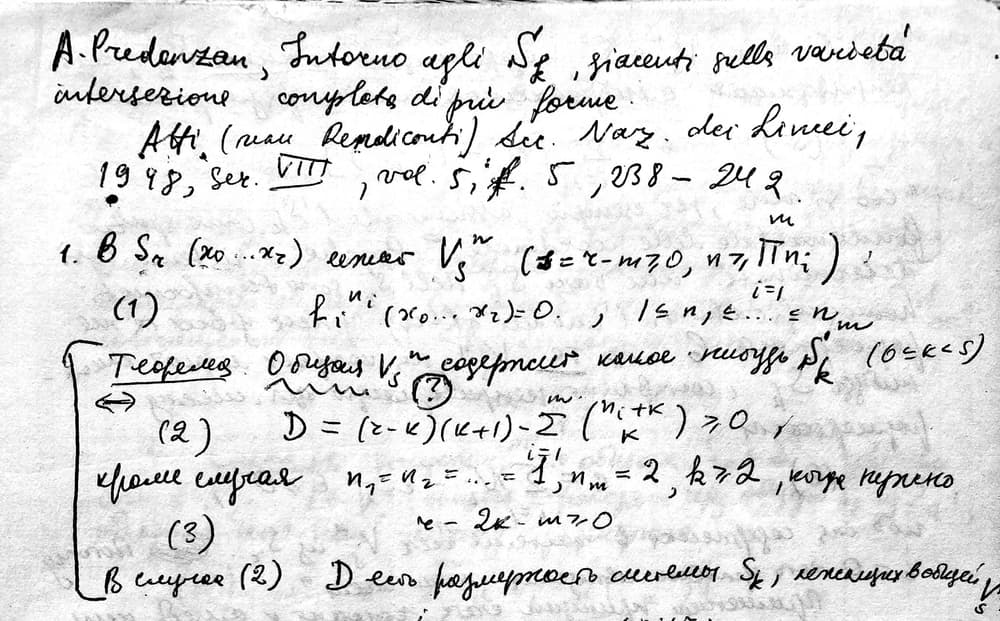 A. Predonzan, Intorno agli S_k, giacenti sulla varietà
intersezione completa di più forme.
Atti (Rendiconti) Acc. Naz. dei Lincei,
1948, ser. VIII, vol. 5, f. 5, 238 – 242
1. В S_r (x_0...x_r) лежит V_s^n (s = r - m ≥ 0, n = ∏_{i=1}^m n_i)
(1) f_i^{n_i} (x_0...x_r) = 0. , 1 ≤ n_1 ≤ ... ≤ n_m
Теорема. Общая V_s^n содержит какое нибудь S_k (0 ≤ k < s)
⟺ (?)
(2) D = (r-k)(k+1) - Σ_{i=1}^m (n_i+k k) ≥ 0,
кроме случая n_1 = n_2 = ... = 1, n_m = 2, k ≥ 2, когда нужно
(3) r - 2k - m ≥ 0
В случае (2) D есть размерность системы S_k, лежащих в общей V_s